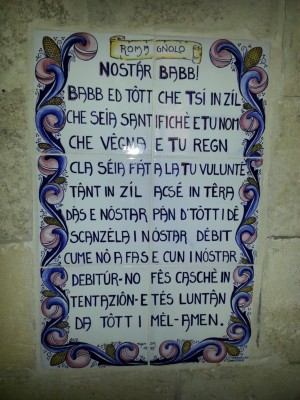 ROMAGNOLO
NOSTÁR BABB!
BABB ED TÔTT CHE TSÍ IN ZÍL
CHE SEIA SANTIFICHÈ E TU NOM
CHE VÊGNA E TU REGN
CLA SÉIA FÁTA LA TU VULUNTÈ
TÂNT IN ZÍL ACSÉ IN TÊRA
DÁS E NÓSTAR PÁN D'TÔTT I DÈ
SCANZÈLA I NÓSTAR DÉBIT
CUME NÔ A FAS E CUN I NÓSTAR
DEBITÚR-NO FÊS CASCHÈ IN
TENTAZIÔN-E TÉS LUNTÂN
DA TÔTT I MÈL-AMEN.